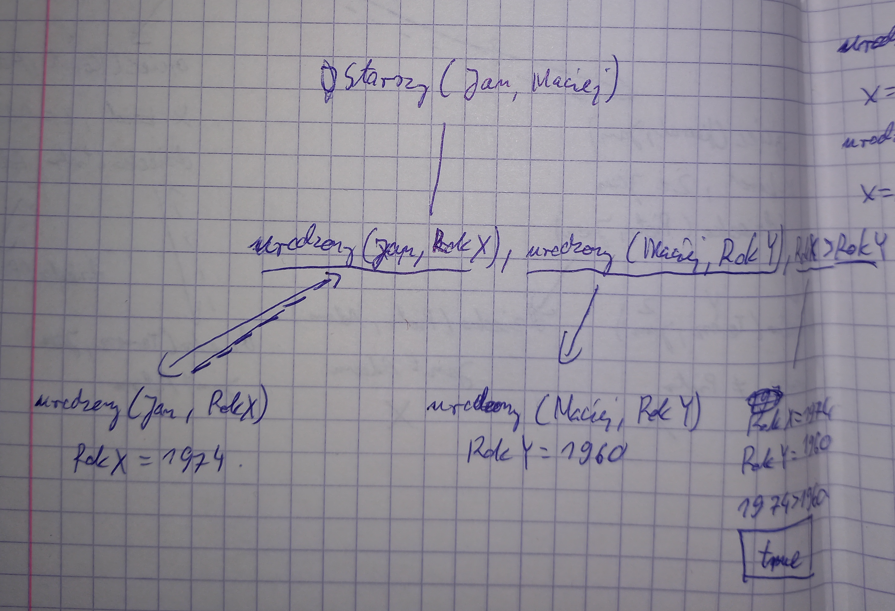 Starszy (Jan, Maciej)
urodzony (Jan, Rok X), urodzony (Maciej, Rok Y), RokX > Rok Y
urodzony (Jan, RokX)
Rok X = 1974.
urodzony (Maciej, Rok Y)
Rok Y = 1960
Rok X = 1974
Rok Y = 1960
1974 > 1960
true
X =
X =